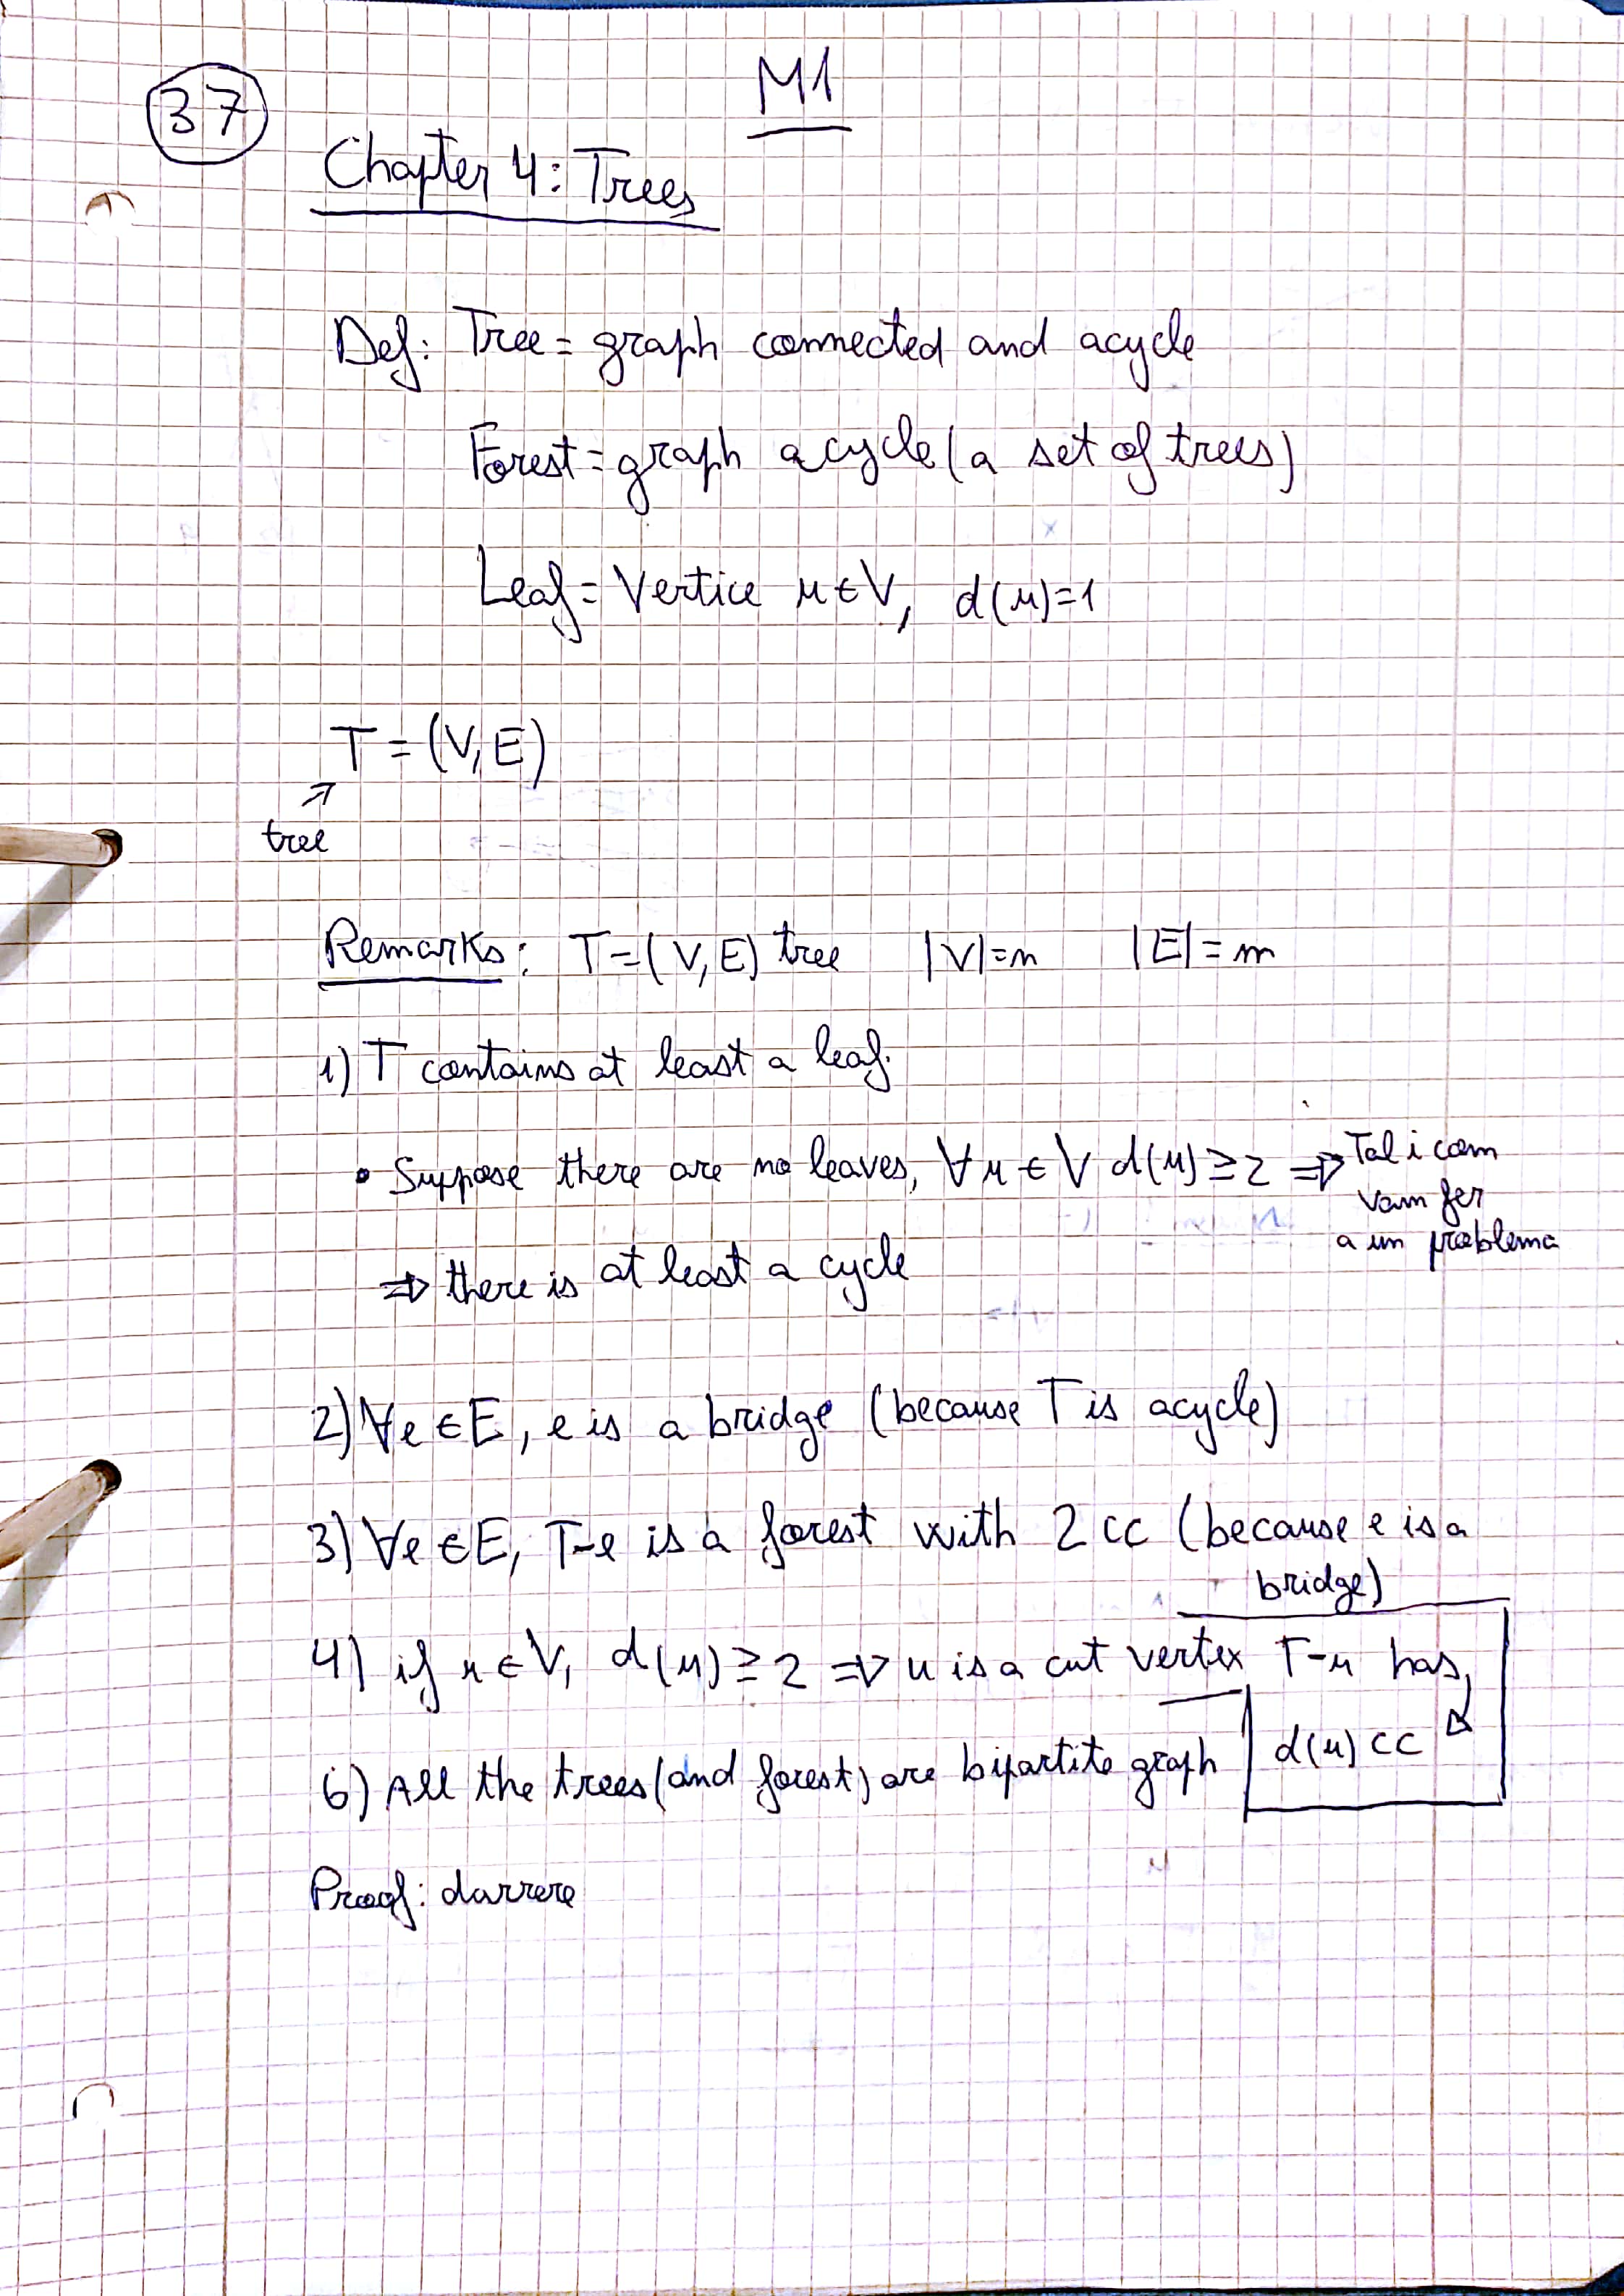 M1
37
Chapter 4: Trees
Def: Tree = graph connected and acycle
Forest = graph acycle (a set of trees)
Leaf = Vertice u ∈ V, d(u)=1
T = (V, E)
tree
Remarks: T = (V, E) tree |V|=n |E|=m
1) T contains at least a leaf.
• Suppose there are no leaves, ∀u ∈ V d(u) ≥ 2 ⇒ Tal i com
vam fer
a un problema
⇒ there is at least a cycle
2) ∀e ∈ E, e is a bridge (because T is acycle)
3) ∀e ∈ E, T-e is a forest with 2 cc (because e is a
bridge)
4) if u ∈ V, d(u) ≥ 2 ⇒ u is a cut vertex T-u has
d(u) cc
6) All the trees (and forest) are bipartite graph
Proof: darrere